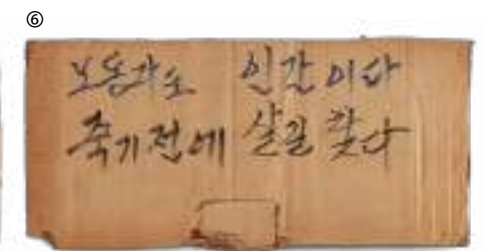 ⑥
노동자도 인간이다
죽기전에 살길 찾다